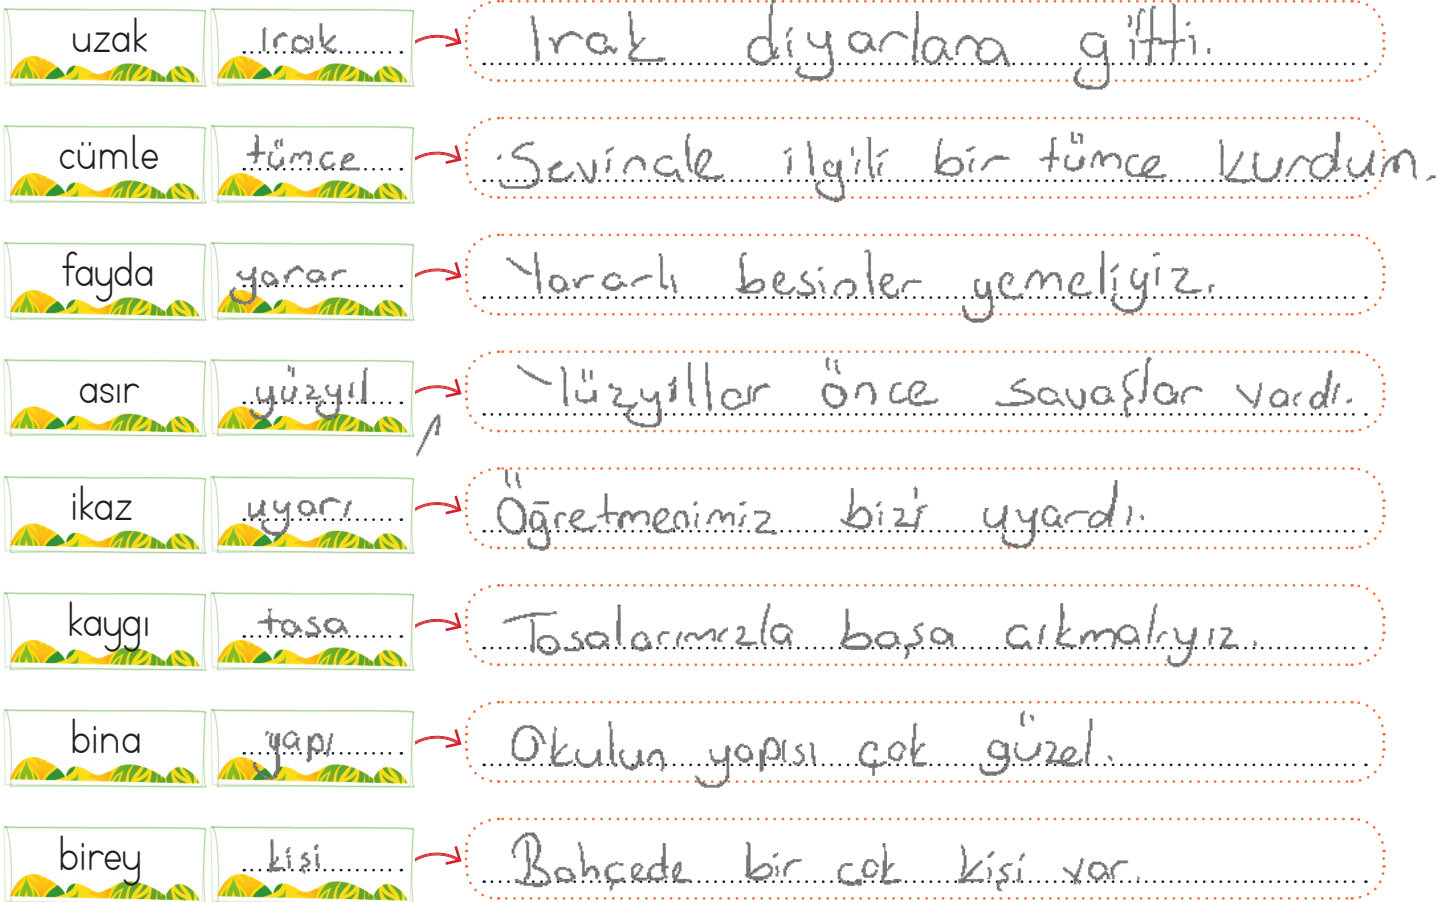 uzak ırak Irak diyarlara gitti.
cümle tümce Sevincle ilgili bir tümce kurdum.
fayda yarar Yararlı besinler yemeliyiz.
asır yüzyıl Yüzyıllar önce savaşlar vardı.
ikaz uyarı Öğretmenimiz bizi uyardı.
kaygı tasa Tasalarımızla başa cıkmalıyız.
bina yapı Okulun yapısı çok güzel.
birey kişi Bahçede bir cok kişi var.